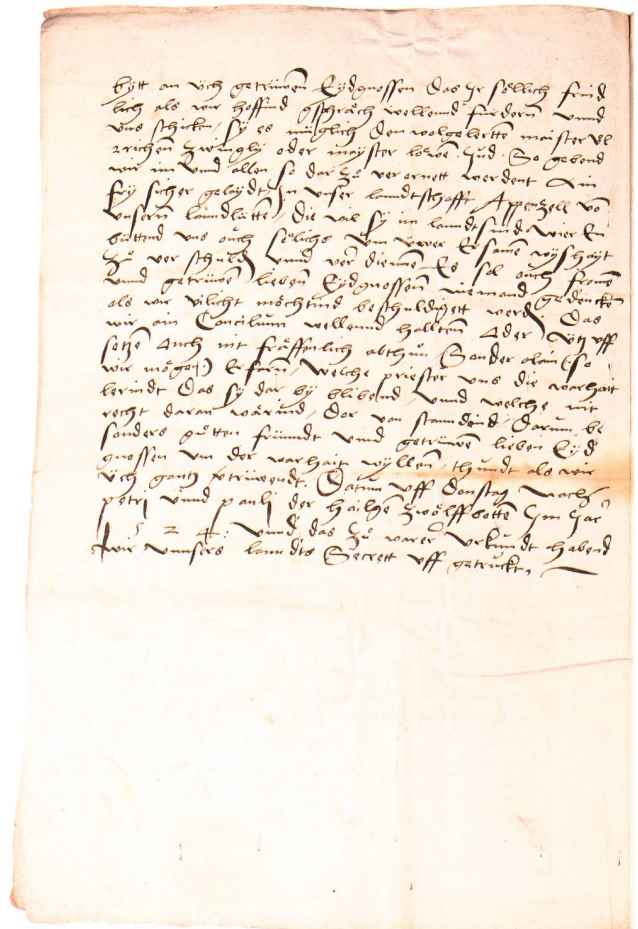 bytt an üch getrüwen Eydgnossen das Jr söllich frind
lich als wir hoffend gsprräch wellend fürdern vnnd
vns schicken, sy es müglich den wolgelertten maister Vl
zrichen Zwingly oder mayster löwen Jud. So gebend
wir im vnnd allen so dar zů verornett werdent ain
fry sicher geleydt, Jn vnser lanndtschafft Appenzell vō
vnsern lanndlütten, die wil sy im lanndt sind. wier En
büttend vns ouch sölichs vm üwer Ersamen wyshayt
zů ver schuld vnnd ver diennen. Es sol ouch fromē
vnnd getrüwē lieben Eydgnossenn niemand gedenckē
als wir vilicht möchtind beschuldigett werdē, das
wir ain Concilium wellennd halltenn, Ader ütz uff
setzē Auch nit fräffenlich abthůn. Sonder alain (so
wir mögen) Erfarn, welche priester vns die warhait
lerindt das sy dar by blibend, vnnd welche nit
recht daran wärind, dar von stanndind, darum be
sonders gůtten fründt vnnd getrüwē lieben Eyd
gnossen um der warhait wyllen, thundt als wir
üch gantz vertrüwendt. Datum uff donstag nach
petri vnnd pauli der hailgē zwölff botten Jm Jar
1 5 2 4. vnnd das zů warer vrkundt habend
wir vnnsers lanndts Secrett uff getruckt,